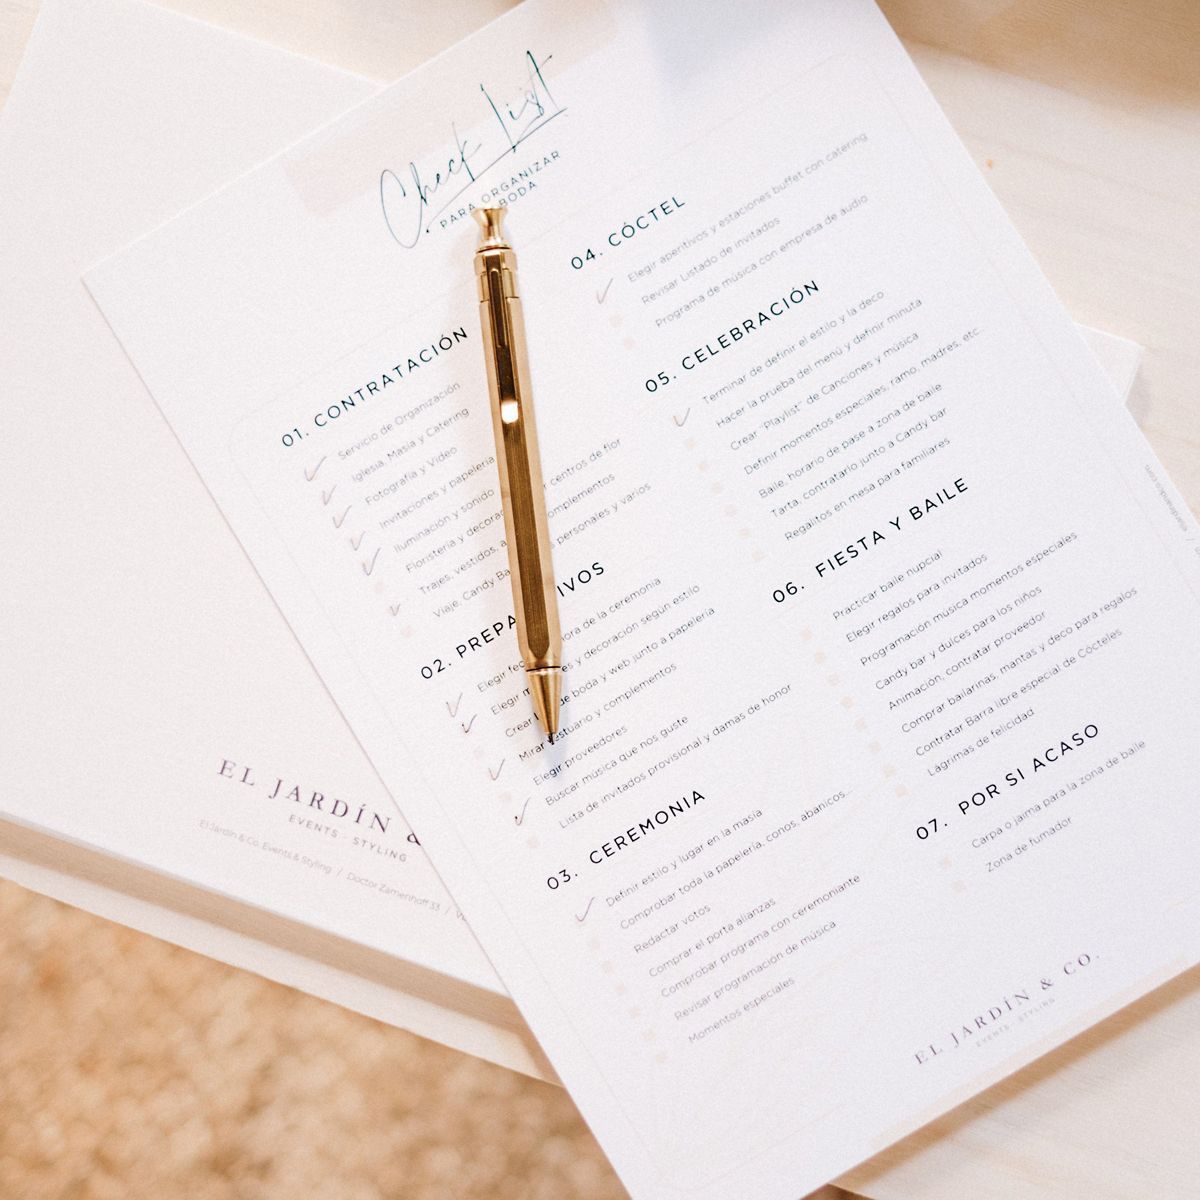 Check List
PARA ORGANIZAR
BODA
01. CONTRATACIÓN
Servicio de Organización
Iglesia, Masia y Catering
Fotografía y Video
Invitaciones y papelería
Iluminación y sonido
Floristería y decora centros de flor
Trajes, vestidos, a complementos
Viaje, Candy Ba personales y varios
02. PREPA IVOS
Elegir fec hora de la ceremonia
Elegir m es y decoración según estilo
Crear l de boda y web junto a papelería
Mirar estuario y complementos
Elegir proveedores
Buscar música que nos guste
Lista de invitados provisional y damas de honor
03. CEREMONIA
Definir estilo y lugar en la masia
Comprobar toda la papelería, conos, abanicos...
Redactar votos
Comprar el porta alianzas
Comprobar programa con ceremoniante
Revisar programación de música
Momentos especiales
04. CÓCTEL
Elegir aperitivos y estaciones buffet con catering
Revisar Listado de invitados
Programa de música con empresa de audio
05. CELEBRACIÓN
Terminar de definir el estilo y la deco
Hacer la prueba del menú y definir minuta
Crear "Playlist" de Canciones y música
Definir momentos especiales, ramo, madres, etc...
Baile, horario de pase a zona de baile
Tarta, contratarlo junto a Candy bar
Regalitos en mesa para familiares
06. FIESTA Y BAILE
Practicar baile nupcial
Elegir regalos para invitados
Programación música momentos especiales
Candy bar y dulces para los niños
Animación, contratar proveedor
Comprar bailarinas, mantas y deco para regalos
Contratar Barra libre especial de Cócteles
Lágrimas de felicidad
07. POR SI ACASO
Carpa o jaima para la zona de baile
Zona de fumador
EL JARDÍN & CO.
EVENTS . STYLING
EL JARDÍN &
EVENTS . STYLING
El Jardín & Co. Events & Styling / Doctor Zamenhoff 33 /